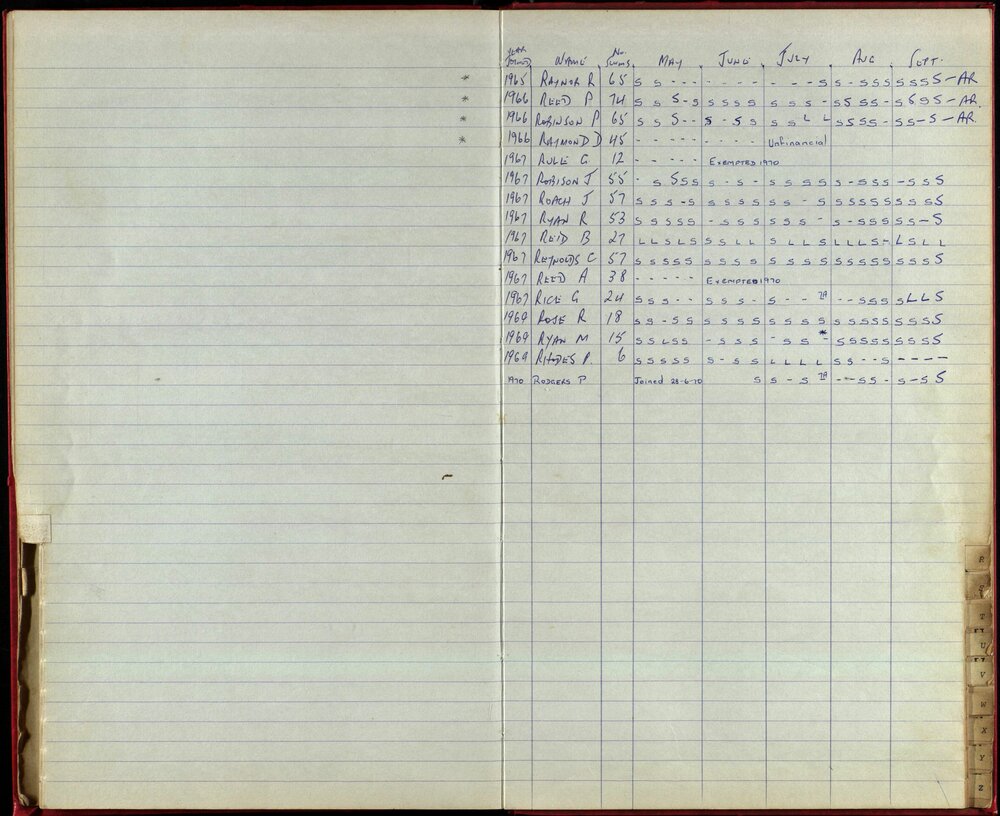 YEAR JOINED NAME No. SWIMS MAY JUNE JULY AUG SEPT.
* 1965 RAYNOR R 65 S S - - - - - - - - - - S S - S S S S S S S - AR
* 1966 REED P 74 S S S - S S S S S S S S - S S S S - S S S S - AR
* 1966 ROBINSON P 65 S S S - - S - S S S S L L S S S S - S S - S - AR
* 1966 RAYMOND D 45 - - - - - - - Unfinancial
1967 RULE G 12 - - - - - EXEMPTED 1970
1967 ROBISON J 55 - S S S S S - S - S S S S S S - S S S - S S S
1967 ROACH J 57 S S S - S S S S S S S S - S S S S S S S S S S
1967 RYAN R 53 S S S S S - S S S S S S - S - S S S S S S - S
1967 REID B 27 L L S L S S S L L S L L S L L L S - L S L L
1967 REYNOLDS C 57 S S S S S S S S S S S S S S S S S S S S S S S
1967 REED A 38 - - - - - EXEMPTED 1970
1967 RICE G 24 S S S - - S S S - S - - IA - - S S S S L L S
1969 ROSE R 18 S S - S S S S S S S S S S S S S S S S S S S
1969 RYAN M 15 S S L S S - S S S - S S * - S S S S S S S S S
1969 RHODES P. 6 S S S S S S - S S L L L L S S - - S - - - -
1970 RODGERS P Joined 28-6-70 S S - S IA - - S S - S - S S
R
S
T
U
V
W
X
Y
Z